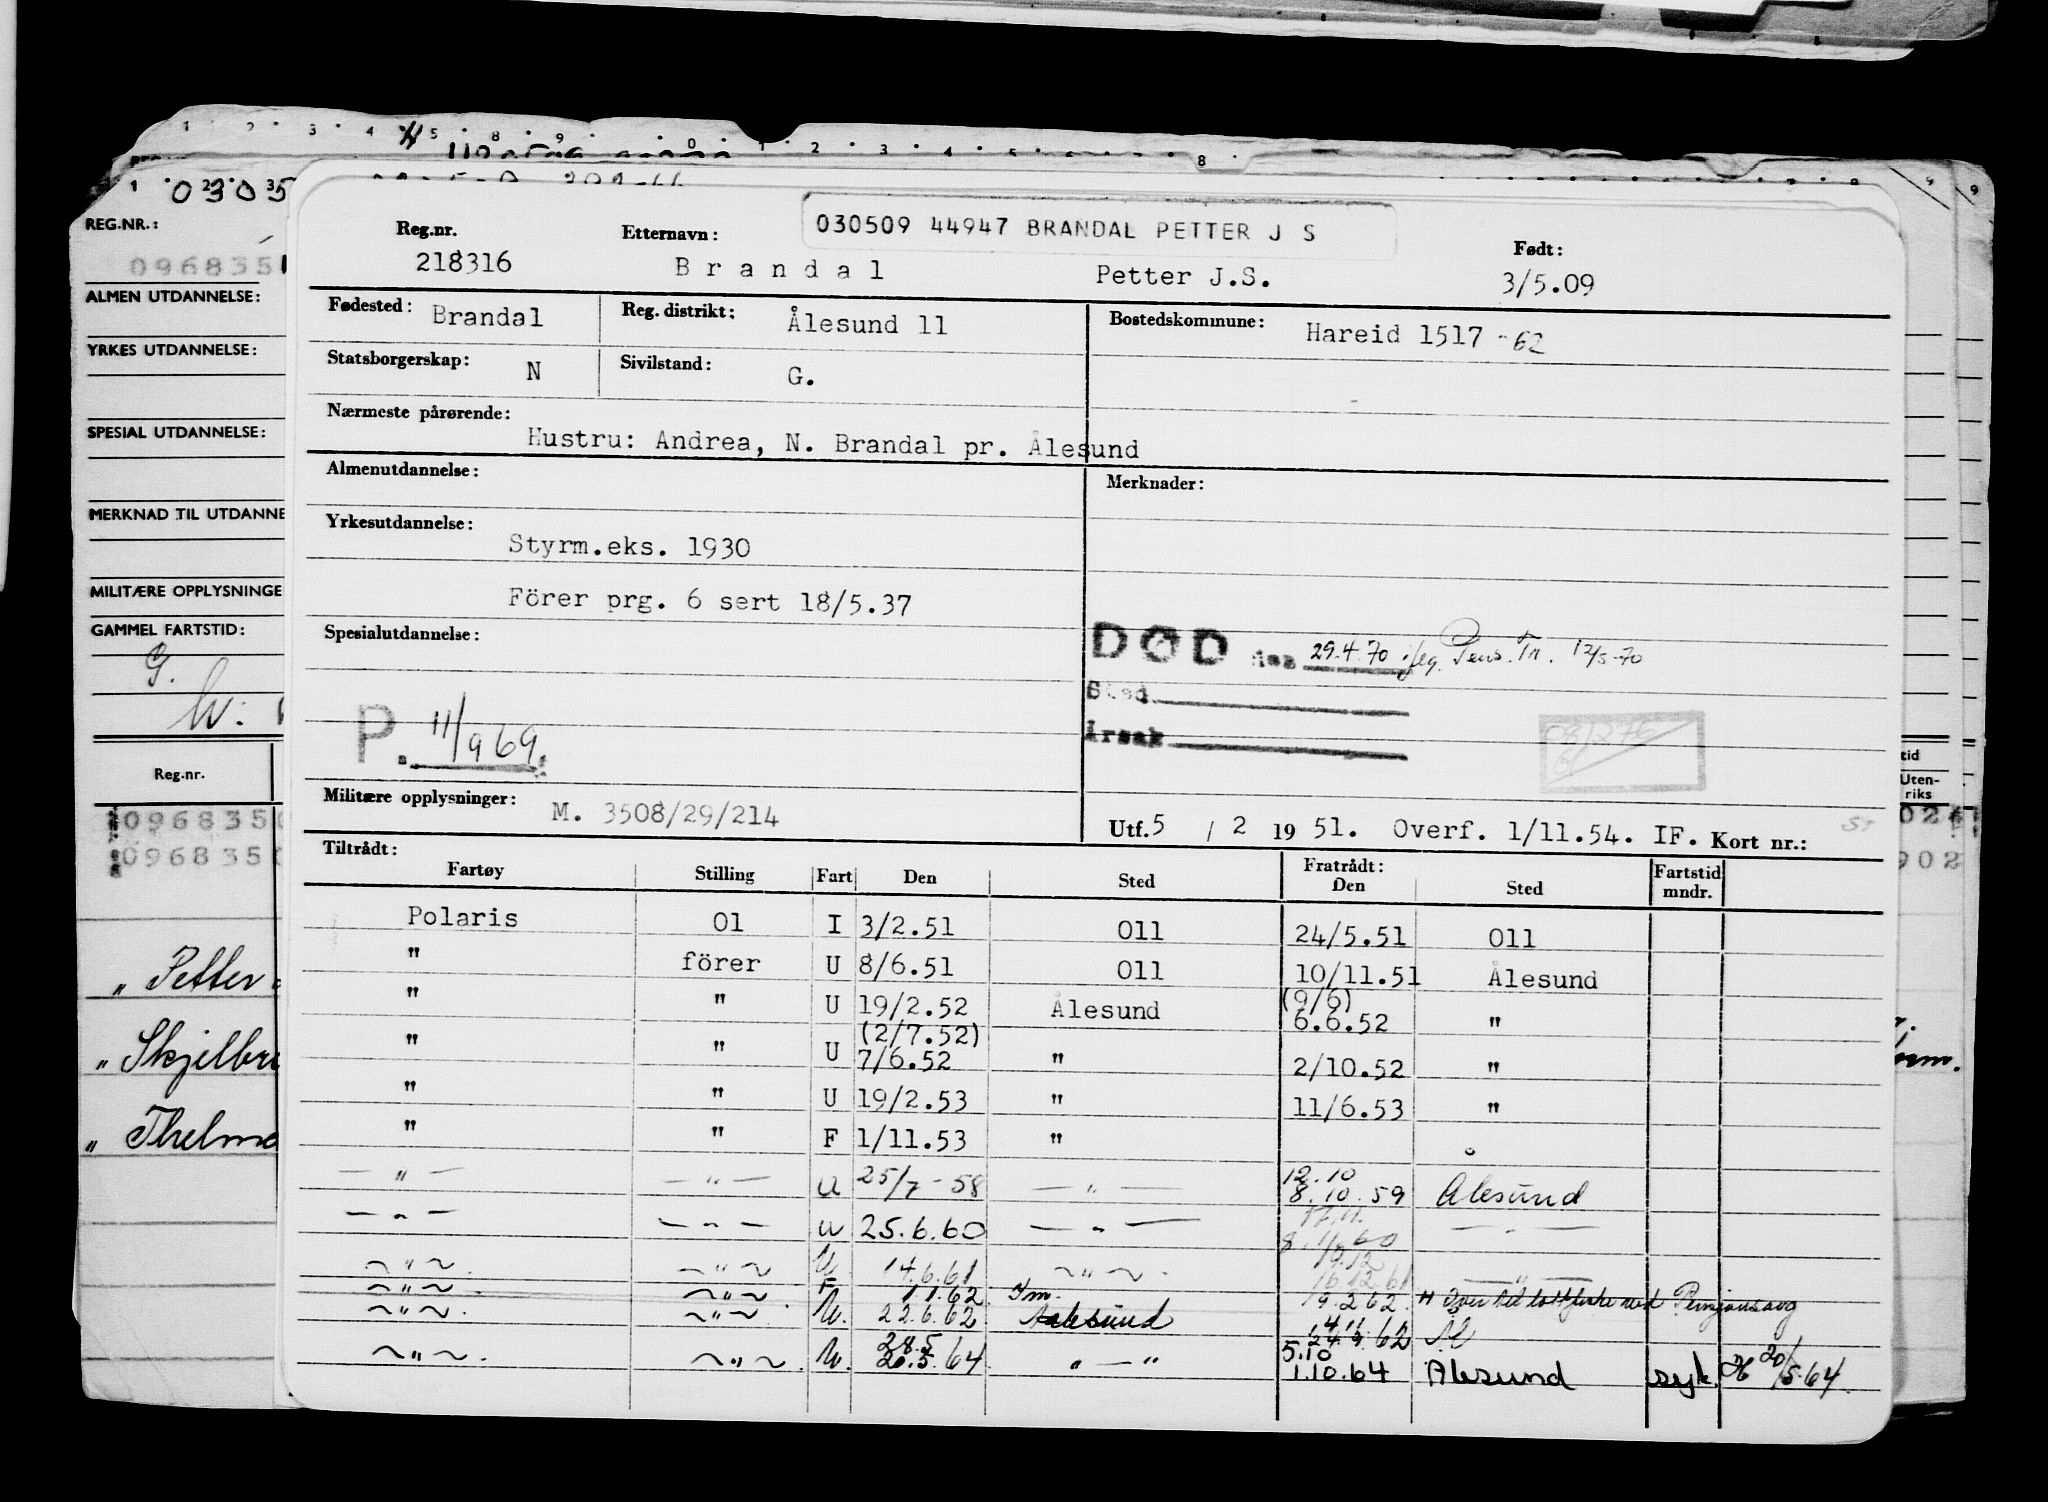 1 2 3 4 5 8 9 0 1 2 3 4 5 8
1 2 3
0305
9 9
REG.NR.:
096835
ALMEN UTDANNELSE:
YRKES UTDANNELSE:
SPESIAL UTDANNELSE:
MERKNAD TIL UTDANNE
MILITÆRE OPPLYSNINGE
GAMMEL FARTSTID:
G.
Reg.nr.
096835
096835
„ Petter
„ Skjelbre
„ Thelma
030509 44947 BRANDAL PETTER J S
Reg.nr. Etternavn: Født:
218316 Brandal Petter J.S. 3/5.09
Fødested: Brandal Reg. distrikt: Ålesund 11 Bostedskommune: Hareid 1517 -62
Statsborgerskap: N Sivilstand: G.
Nærmeste pårørende:
Hustru: Andrea, N. Brandal pr. Ålesund
Almenutdannelse: Merknader:
Yrkesutdannelse:
Styrm.eks. 1930
Förer prg. 6 sert 18/5.37
Spesialutdannelse:
DØD den 29.4.70 ifeg. Pens. Tr. 12/5-70
Sted
Årsak
P. 11/9 69.
Militære opplysninger: M. 3508/29/214
Utf. 5 / 2 19 51. Overf. 1/11.54. IF. Kort nr.:
Tiltrådt: Fratrådt:
Fartøy Stilling Fart Den Sted Den Sted Fartstid mndr.
Polaris Ol I 3/2.51 Oll 24/5.51 Oll
" förer U 8/6.51 Oll 10/11.51 Ålesund
" " U 19/2.52 Ålesund (9/6) 6.6.52 "
" " U (2/7.52) 7/6.52 " 2/10.52 "
" " U 19/2.53 " 11/6.53 "
" " F 1/11.53 "
— " — — " — U 25/7-58 — " — 12.10 8.10.59 Ålesund
— " — — " — U 25.6.60 — " — 17.11. 8.11.60 — " —
— " — — " — U 14.6.61 — " — 19.12 16.12.61 — " —
— " — — " — F 1.1.62 Im. 19.2.62
— " — — " — U. 22.6.62 Aalesund 62
— " — — " — U. 28.5 20.5.64 " — " 5.10 1.10.64 Ålesund syk. 20/5.64
tid
Uten-
riks
902